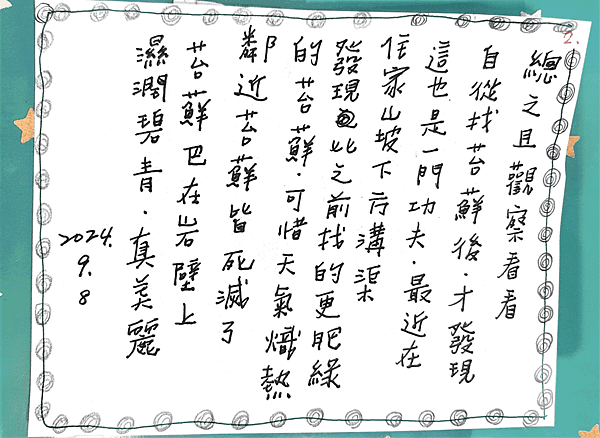 2.
總之且觀察看看
自從找苔蘚後·才發現
這也是一門功夫·最近在
住家山坡下方溝渠
發現比之前找的更肥綠
的苔蘚·可惜天氣熾熱
鄰近苔蘚皆死滅了
苔蘚巴在岩壁上
濕潤碧青·真美麗
2024.
9.
8